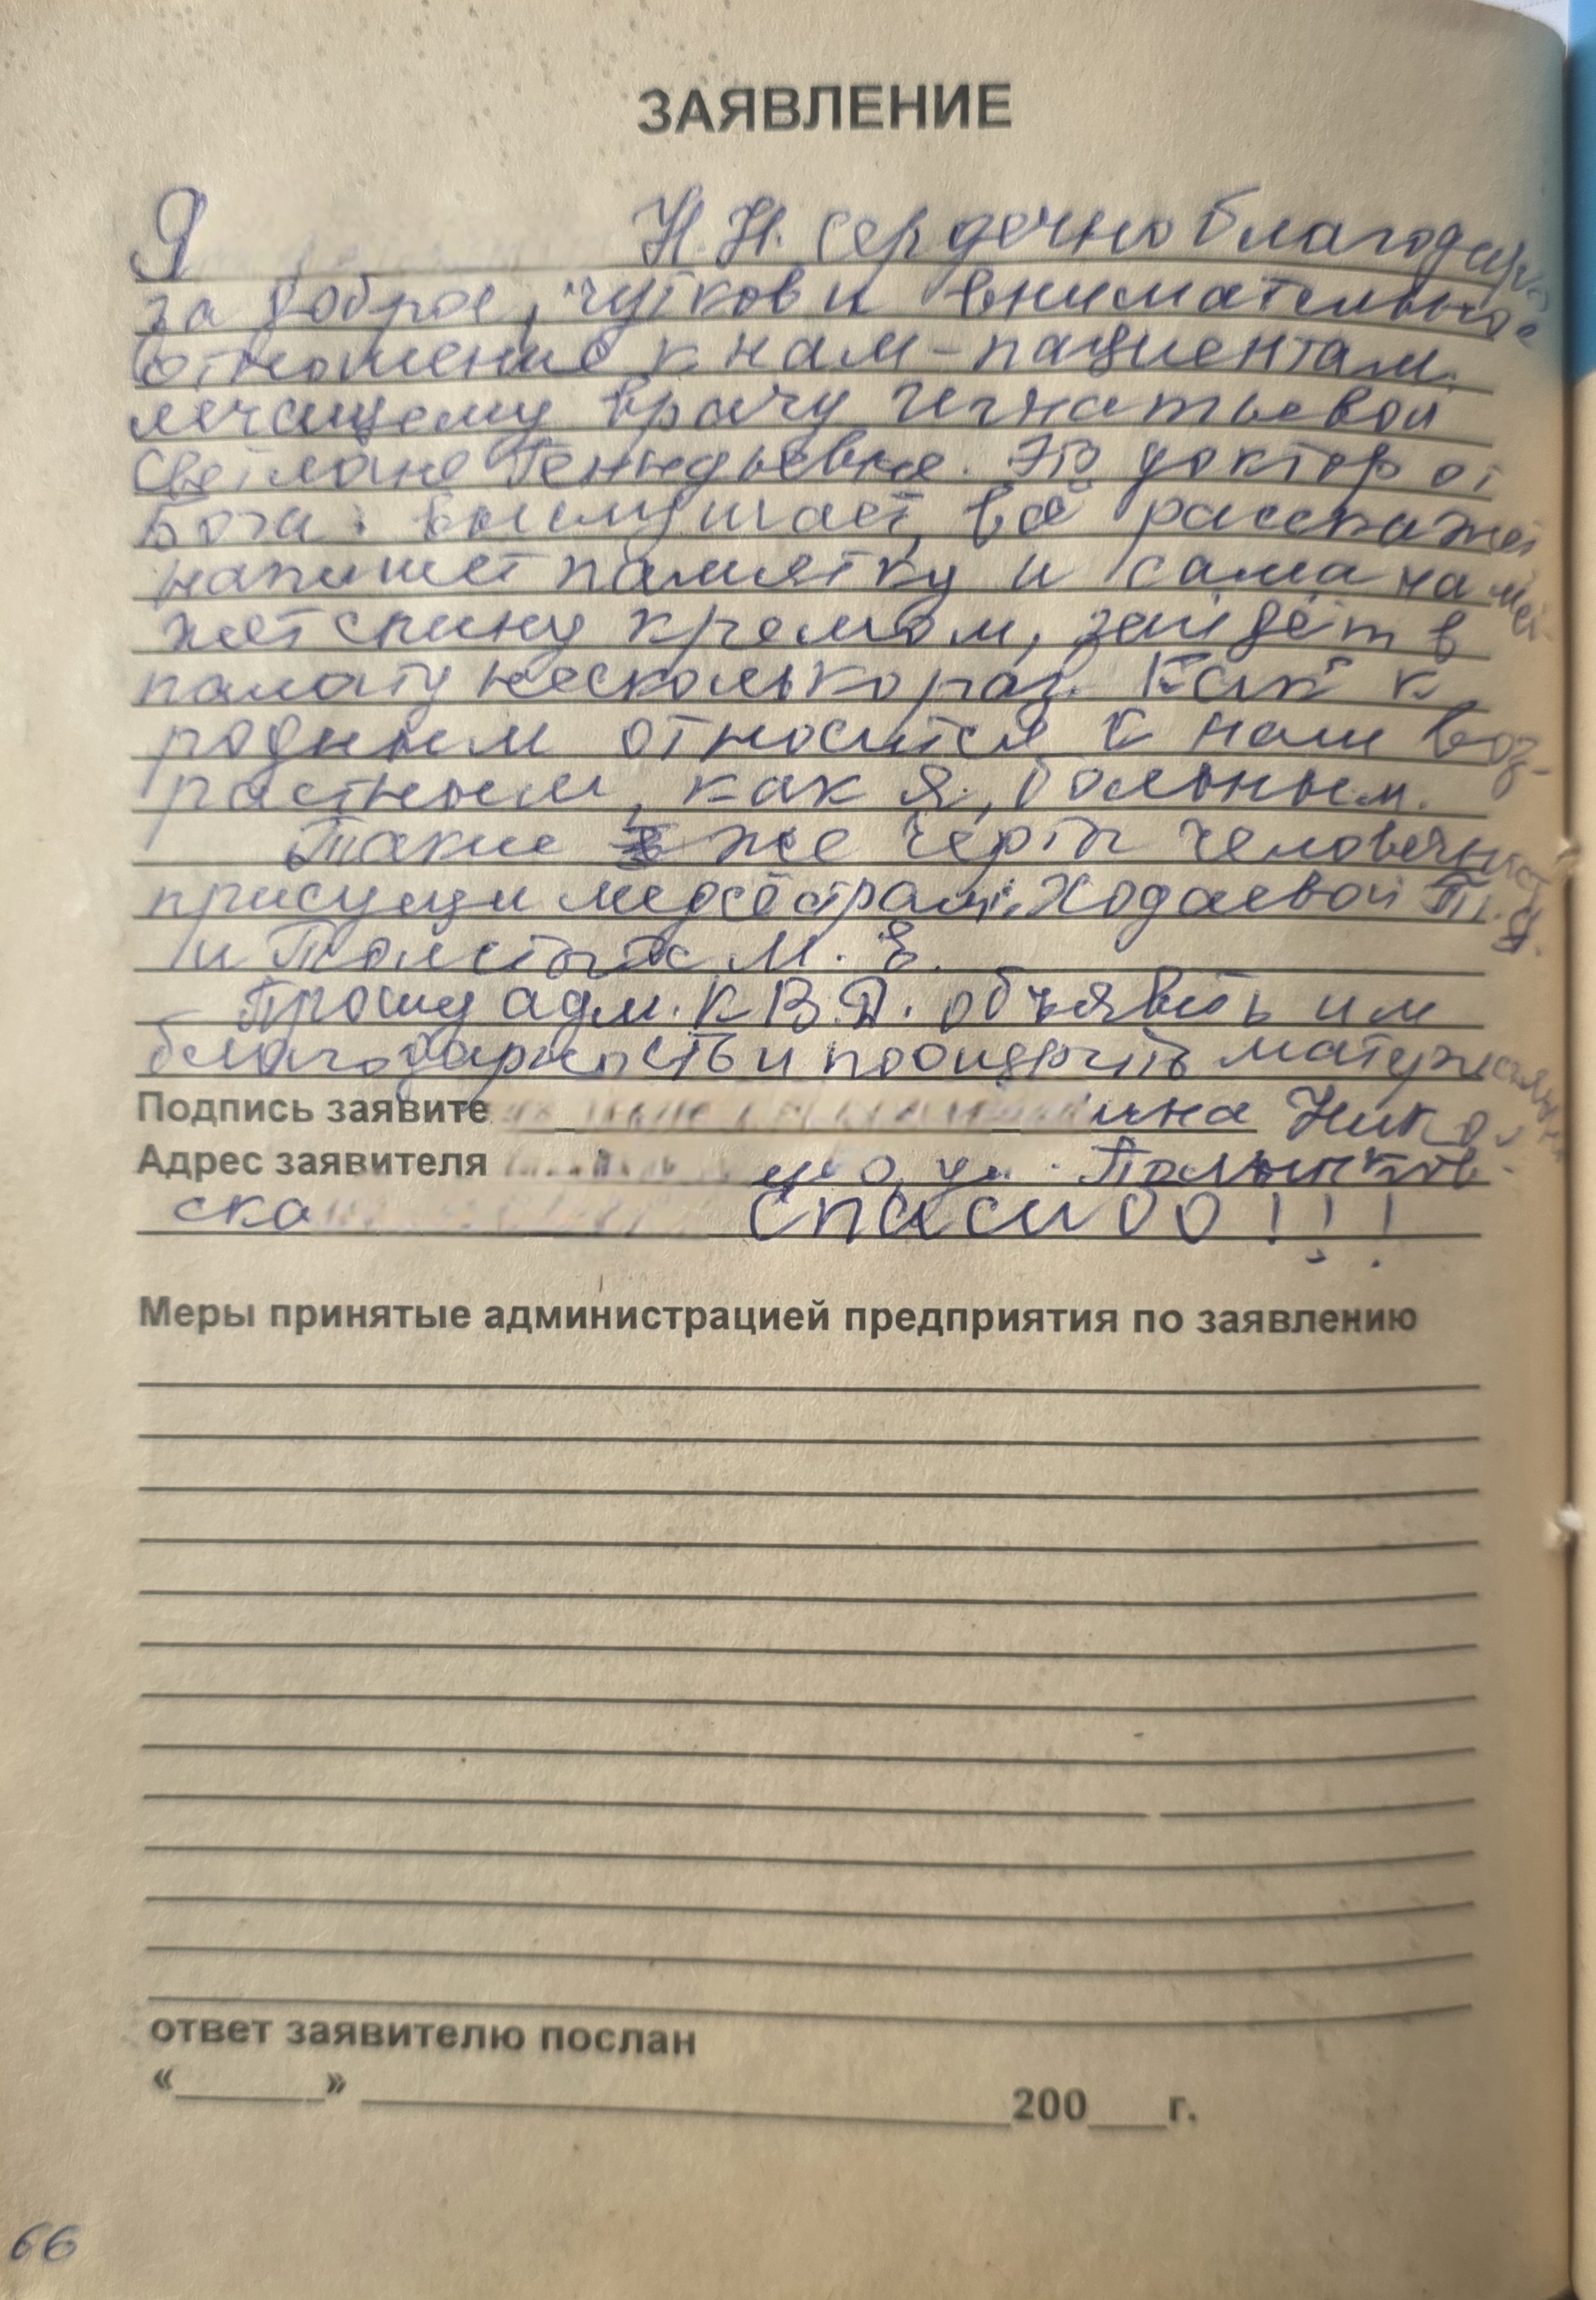 ЗАЯВЛЕНИЕ
Я Н.Н. сердечно благодарю
за доброе, чуткое и внимательное
отношение к нам-пациентам.
лечащему врачу Игнатьевой
Светлане Генндьевне. Это доктор от
Бога: выслушает, всё расскажет
напишет памятку и сама нама
жет спину кремом, зайдёт в
палату несколько раз. Как к
родным относится к нам воз-
растным, как я, больным.
Такие же черты человечности
присущи медсёстрам: Ходаевой Т.Д.
и Толстых М. Е.
Прошу адм. КВД. объявить им
благодарность и поощрить материально
Подпись заявите ина Никол
Адрес заявителя ул. Полынков-
ска Спасибо!!!
Меры принятые администрацией предприятия по заявлению
ответ заявителю послан
«______» ______ 200___г.
66